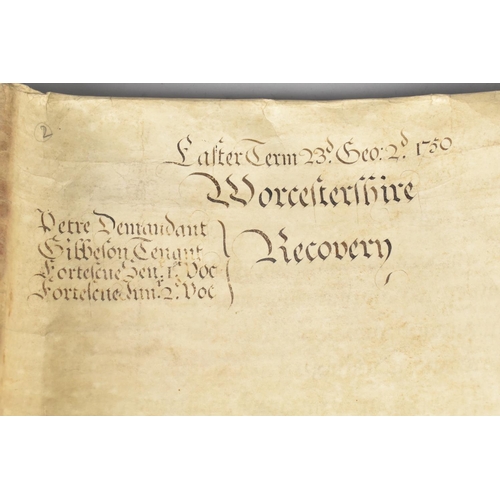 2
Easter Term 23.d Geo: 2.d 1750
Worcestershire
Petre Demandant
Gibbeson Tenant
Fortescue Sen.r 1.st Voc
Fortescue Jun.r 2.d Voc
Recovery